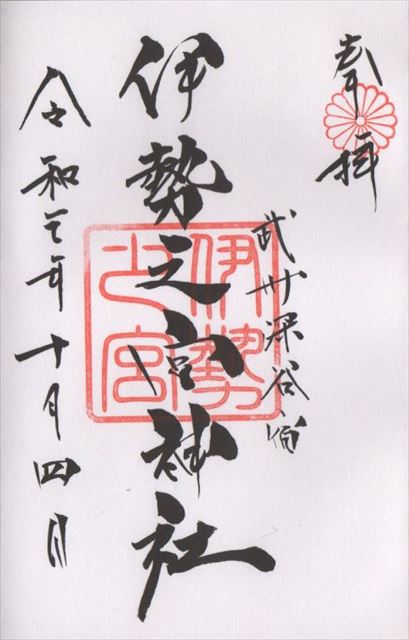 奉拝
武州深谷宿
伊勢之宮神社
伊勢
之宮
令和元年十月四日